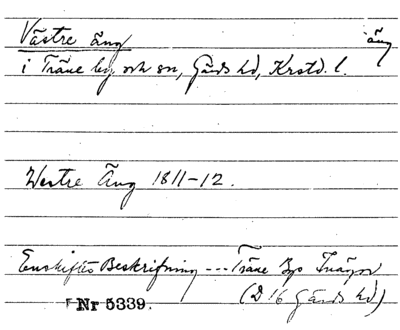 Västre äng
äng
i Träne by och sn, Gärds hd, Krstd. l.
Westre Äng 1811-12.
Enskiftes Beskrifning --- Träne By Inägor
Nr 5339.
(D 16 Gärds hd)